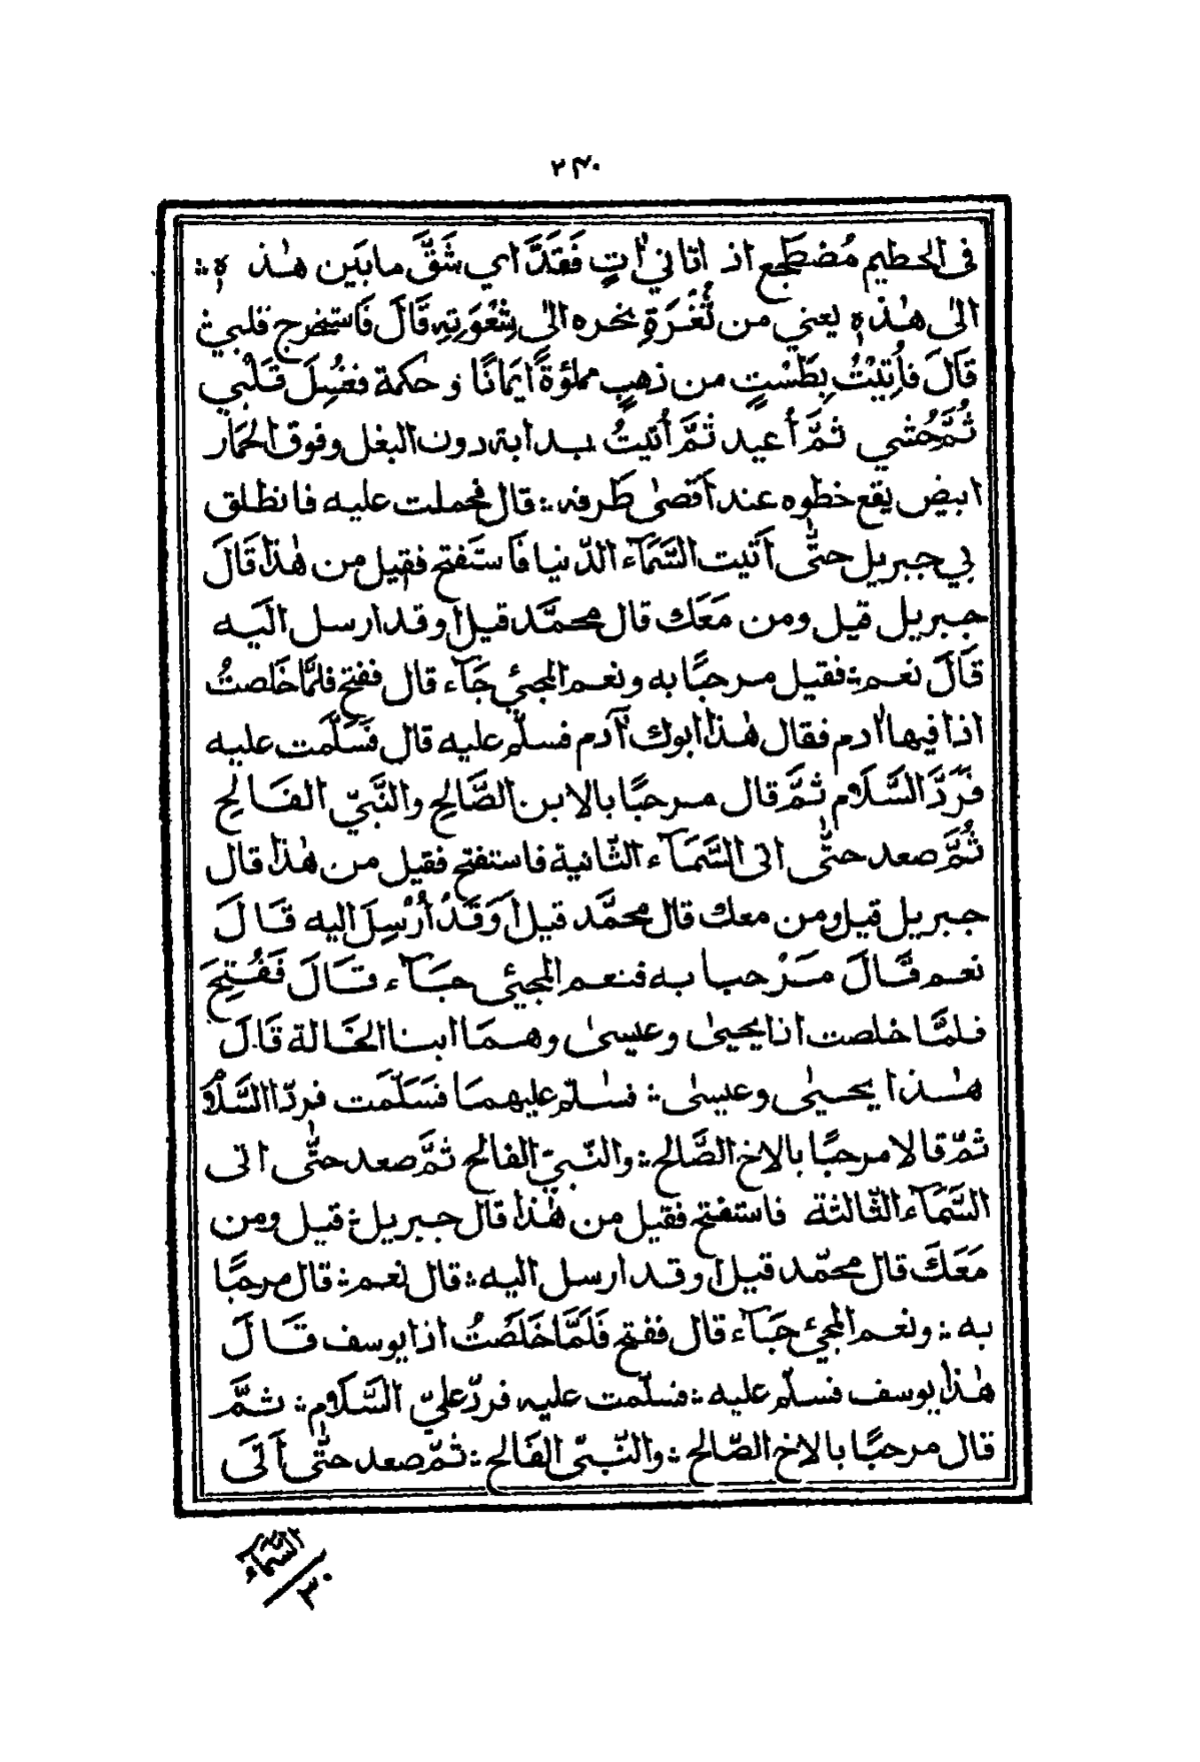 ٢٣٠
فى الحطيم مُضطَجع اذ اتاني اٰتٍ فَقَدَّ اي شَقَّ ما بَيَن هٰذ هٖ ؞
الىٰ هٰذهٖ يعني من ثُغَرَةِ نحره الىٰ شِعْوَتِهٖ قَالَ فَاستخرج قلبي
قَالَ فأُتِيْتُ بِطَسْتٍ من ذهبٍ مملؤةً ايَمانًا و حكمة فغُسِلَ قَلْبي
ثُمَّ حُشي ثمَّ أعيد ثُمَّ أُتيتُ بدابة دون البغل وفوق الحمَار
ابيض يقع خطوه عند أقصىٰ طَرفه ؞ قال فحملت عليه فانطلق
بي جبريل حتّٰى أتيت السَّمَآء الدّنيا فَاستَفتح فقيل من هٰذا قَالَ
جبريل قيل ومن مَعَك قال محمَّد قيل أوقد ارسل اليَه
قَالَ نعم ؞ فقيل مرحبًا به ونعم المجيُ جَآء قال ففتح فلمَّا خَلصتُ
اذا فيها اٰدم فقال هٰذا ابوك اٰدم فسلّم عليه قال فَسَلّمت عليه
فَرَدَّ السَّلَام ثمَّ قال مرحبًا بالابن الصَّالحِ والنَّبيّ الصَالحِ
ثُمَّ صعد حتّٰى اتى السَّمَآء الثّانية فاستفتح فقيل من هٰذا قال
جبريل قيل ومن معك قال محمَّد قيل أَوَقَدْ أُرْسِلَ اليه قَالَ
نعم قَالَ مَرْحبا به فنعم المجئي جَآء قَالَ فَفُتِحَ
فلمَّا خلصت اذا يحيىٰ وعيسىٰ وهمَا ابنا الخَالة قَالَ
هٰذا يحيىٰ وعيسىٰ ؞ فسلّم عليهمَا فَسَلّمَت فردّا السَّلَامُ
ثمّ قالا مرحبًا بالاخ الصَّالح ؞ والنّبيّ الصالح ثمَّ صعد حتّٰى اتى
السَّمَآء الثّالثة فاستفتح فقيل من هٰذا قال جبريل ؞ قيل ومن
مَعَكَ قال محمّد قيل أوقد ارسل اليه ؞ قال نعم ؞ قال مرحبًا
به ؞ ونعم المجيُ جَآء قال ففتح فَلَمَّا خَلَصَتُ اذا يوسف قَالَ
هٰذا يوسف فسلّم عليه ؞ فسلّمت عليه فردّ عليّ السَّلَام ؞ ثمَّ
قال مرحبًا بالاخ الصّالح ؞ والنّبىّ الصَالح ؞ ثمّ صعد حتّٰى أَتَى
السَّمَآء
٣٠